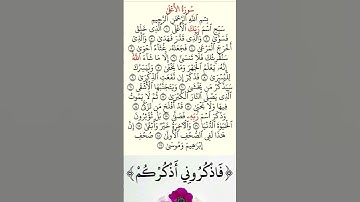 سُورَةُ الأَعْلَى
بِسْمِ ٱللَّهِ ٱلرَّحْمَٰنِ ٱلرَّحِيمِ
سَبِّحِ ٱسْمَ رَبِّكَ ٱلْأَعْلَى ١ ٱلَّذِي خَلَقَ
فَسَوَّىٰ ٢ وَٱلَّذِي قَدَّرَ فَهَدَىٰ ٣ وَٱلَّذِي
أَخْرَجَ ٱلْمَرْعَىٰ ٤ فَجَعَلَهُۥ غُثَآءً أَحْوَىٰ ٥
سَنُقْرِئُكَ فَلَا تَنسَىٰ ٦ إِلَّا مَا شَآءَ ٱللَّهُ
إِنَّهُۥ يَعْلَمُ ٱلْجَهْرَ وَمَا يَخْفَىٰ ٧ وَنُيَسِّرُكَ
لِلْيُسْرَىٰ ٨ فَذَكِّرْ إِن نَّفَعَتِ ٱلذِّكْرَىٰ ٩
سَيَذَّكَّرُ مَن يَخْشَىٰ ١٠ وَيَتَجَنَّبُهَا ٱلْأَشْقَى ١١
ٱلَّذِي يَصْلَى ٱلنَّارَ ٱلْكُبْرَىٰ ١٢ ثُمَّ لَا يَمُوتُ
فِيهَا وَلَا يَحْيَىٰ ١٣ قَدْ أَفْلَحَ مَن تَزَكَّىٰ ١٤
وَذَكَرَ ٱسْمَ رَبِّهِۦ فَصَلَّىٰ ١٥ بَلْ تُؤْثِرُونَ
ٱلْحَيَوٰةَ ٱلدُّنْيَا ١٦ وَٱلْأَخِرَةُ خَيْرٌ وَأَبْقَىٰ ١٧ إِنَّ
هَٰذَا لَفِي ٱلصُّحُفِ ٱلْأُولَىٰ ١٨ صُحُفِ
إِبْرَٰهِيمَ وَمُوسَىٰ ١٩
﴿فَاذْكُرُونِي أَذْكُرْكُمْ﴾